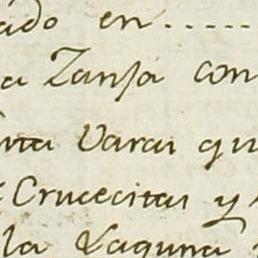 ado en.....
a Zanja con
nta Varas qu
Crucecitas y
la Laguna